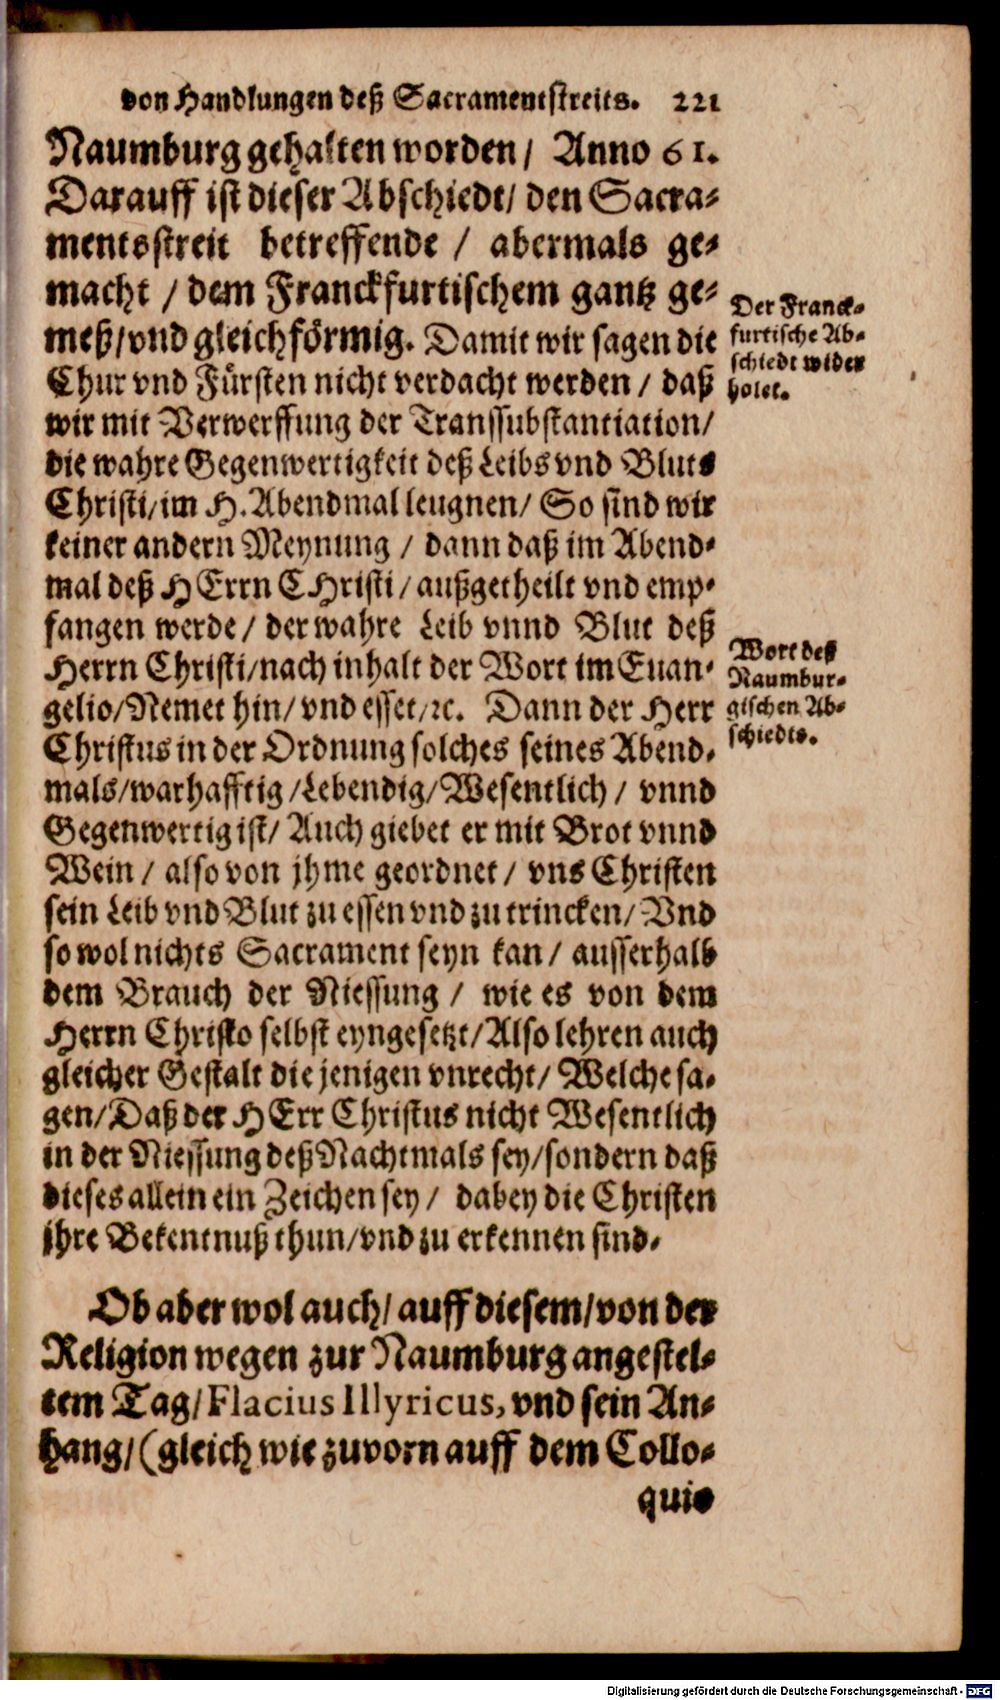 von Handlungen deß Sacramentstreits. 221
Naumburg gehalten worden / Anno 61.
Darauff ist dieser Abschiedt / den Sacra-
mentsstreit betreffende / abermals ge-
macht / dem Franckfurtischem gantz ge-
meß / vnd gleichförmig. Damit wir sagen die
Chur vnd Fürsten nicht verdacht werden / daß
wir mit Verwerffung der Transsubstantiation /
die wahre Gegenwertigkeit deß Leibs vnd Bluts
Christi / im H. Abendmal leugnen / So sind wir
keiner andern Meynung / dann daß im Abend-
mal deß HErrn CHristi / außgetheilt vnd emp-
fangen werde / der wahre Leib vnnd Blut deß
Herrn Christi / nach inhalt der Wort im Euan-
gelio / Nemet hin / vnd esset / ꝛc. Dann der Herr
Christus in der Ordnung solches seines Abend-
mals / warhafftig / Lebendig / Wesentlich / vnnd
Gegenwertig ist / Auch giebet er mit Brot vnnd
Wein / also von jhme geordnet / vns Christen
sein Leib vnd Blut zu essen vnd zu trincken / Vnd
so wol nichts Sacrament seyn kan / ausserhalb
dem Brauch der Niessung / wie es von dem
Herrn Christo selbst eyngesetzt / Also lehren auch
gleicher Gestalt die jenigen vnrecht / Welche sa-
gen / Daß der HErr Christus nicht Wesentlich
in der Niessung deß Nachtmals sey / sondern daß
dieses allein ein Zeichen sey / dabey die Christen
jhre Bekentnuß thun / vnd zu erkennen sind.
Ob aber wol auch / auff diesem / von der
Religion wegen zur Naumburg angestel-
tem Tag / Flacius Illyricus, vnd sein An-
hang / (gleich wie zuvorn auff dem Collo-
quio
Der Franck-
furtische Ab-
schiedt wider
holet.
Wort deß
Naumbur-
gischen Ab-
schiedts.
Digitalisierung gefördert durch die Deutsche Forschungsgemeinschaft - DFG